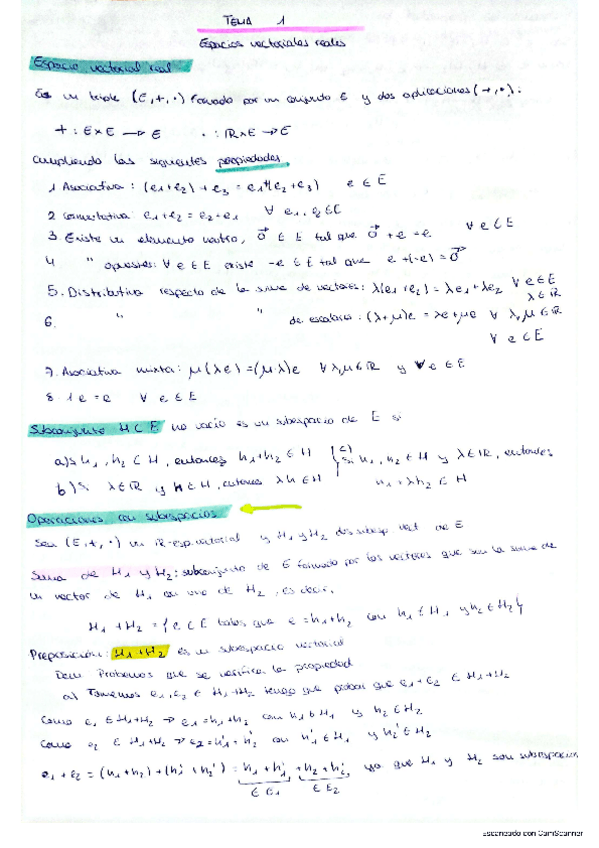 TEMA 1
Espacios vectoriales reales
Espacio vectorial real
Es un triple (E,+,·) formado por un conjunto E y dos aplicaciones (+,·):
+ : E×E → E · : ℝ×E → E
cumpliendo las siguientes propiedades
1 Asociativa : (e1+e2) + e3 = e1+(e2+e3) e ∈ E
2 conmutativa: e1+e2 = e2+e1 ∀ e1, e2 ∈ E
3 Existe un elemento neutro, 0⃗ ∈ E tal que 0⃗ + e = e ∀ e ∈ E
4 " opuesto: ∀ e ∈ E existe -e ∈ E tal que e+(-e) = 0⃗
5. Distributiva respecto de la suma de vectores: λ(e1+e2) = λe1+λe2 ∀ e ∈ E λ ∈ ℝ
6. " " de escalares: (λ+μ)e = λe+μe ∀ λ,μ ∈ ℝ
∀ e ∈ E
7. Asociativa mixta: μ(λe) = (μ·λ)e ∀ λ,μ ∈ ℝ y ∀ e ∈ E
8. 1e = e ∀ e ∈ E
Subconjunto H ⊂ E no vacío es un subespacio de E si
a) Si h1, h2 ⊂ H, entonces h1+h2 ∈ H } c) Si h1, h2 ∈ H y λ ∈ ℝ, entonces
b) Si λ ∈ ℝ y h ∈ H, entonces λh ∈ H h1 + λh2 ∈ H
Operaciones con subespacios
Sea (E,+,·) un ℝ-esp.vectorial y H1 y H2 dos subesp vect de E
Suma de H1 y H2: subconjunto de E formado por los vectores que son la suma de
un vector de H1 con uno de H2, es decir,
H1 + H2 = { e ∈ E tales que e = h1+h2 con h1 ∈ H1 y h2 ∈ H2 }
Preposición: H1+H2 es un subespacio vectorial
Dem Probemos que se verifica la propiedad
a) Tomemos e1, e2 ∈ H1+H2 tengo que probar que e1+e2 ∈ H1+H2
Como e1 ∈ H1+H2 → e1 = h1+h2 con h1 ∈ H1 y h2 ∈ H2
Como e2 ∈ H1+H2 → e2 = h1'+h2' con h1' ∈ H1 y h2' ∈ H2
e1 + e2 = (h1+h2) + (h1'+h2') = h1+h1' + h2+h2', ya que H1 y H2 son subespacios
∈ E1 ∈ E2
Escaneado con CamScanner